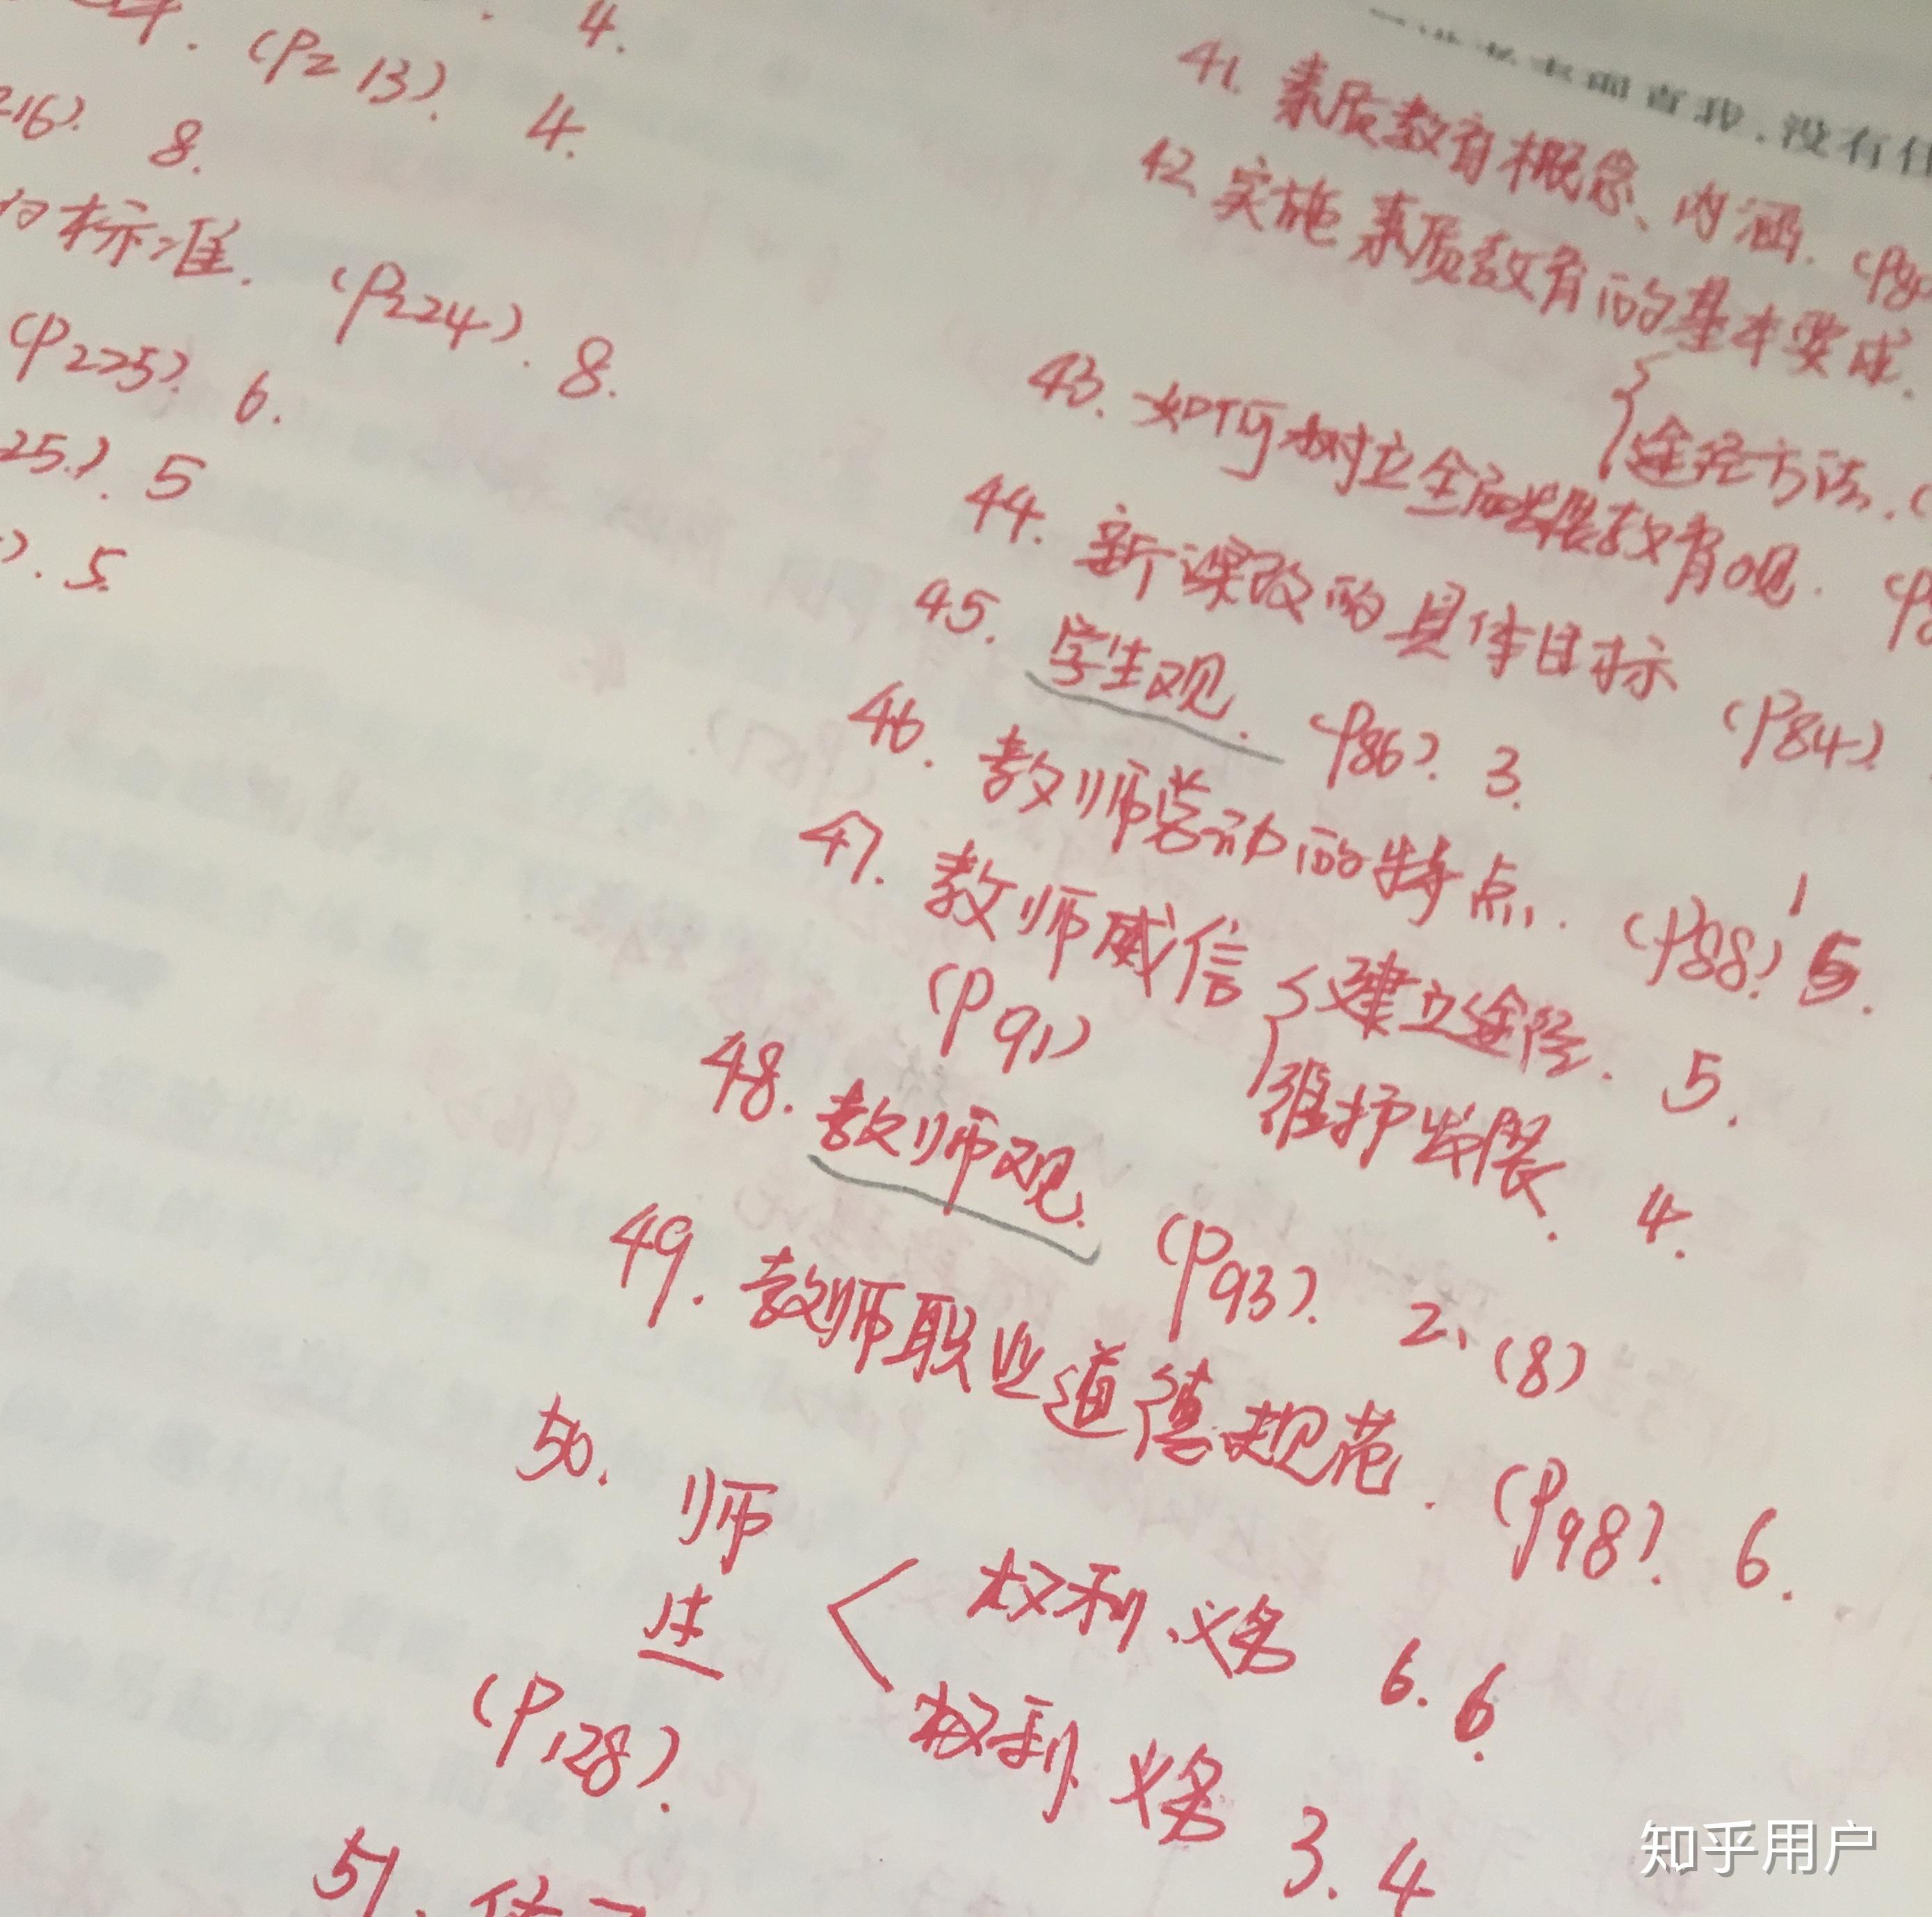 4.
(P213). 4.
216). 8.
标准. (P224). 8.
(P225). 6.
25.). 5
). 5.
没有任
41. 素质教育概念、内涵. (P80
42. 实施素质教育的基本要求.
途径方法.
43. 如何树立全面发展教育观.
44. 新课改的具体目标 (P84).
45. 学生观. (P86). 3.
46. 教师劳动的特点. (P88). 5.
47. 教师威信 { 建立途径. 5.
(P91) 维护发展. 4.
48. 教师观. (P93). 2、(8)
49. 教师职业道德规范. (P98). 6.
50. 师 权利、义务 6. 6.
生 权利、义务 3. 4
(P128).
51.
知乎用户